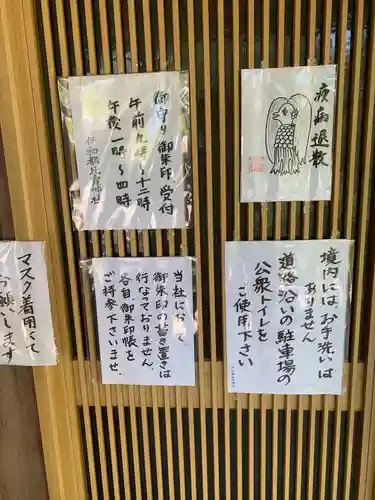 疾病退散
御守り・御朱印受付
午前九時〜十二時
午後一時〜四時
伊和都比売神社
境内にはお手洗いは
ありません
道路沿いの駐車場の
公衆トイレを
ご使用下さい
当社において
御朱印の書き置きは
行なっておりません。
各自御朱印帳を
ご持参下さいませ。
マスク着用にて
お願いします